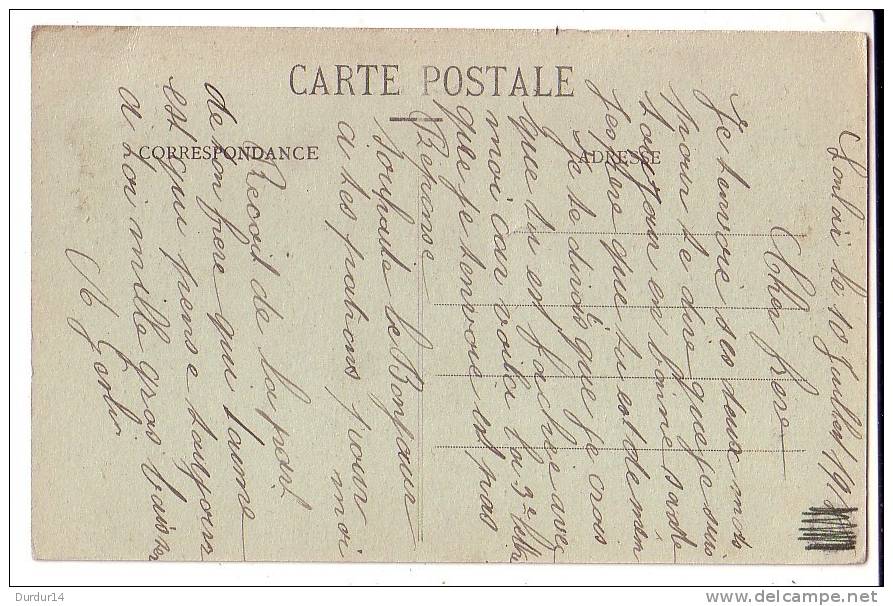 CARTE POSTALE
CORRESPONDANCE
ADRESSE
le 10 Juillet 19
Cher frere
Je tenvoie ses deux mots
pour te dire que je suis
toujour en bonne sante
jespere que tu est de mem
Je te dirais que je crois
que tu est fachee avec
moi car voila la 3e
que je tenvoie est pas
Reponse
Souhaite le Bonjour
a tes patrons pour
moi
Recoit de la part
de ton frere qui taime
est qui pense toujours
a toi mille gros
Durdur14
delcampe.net